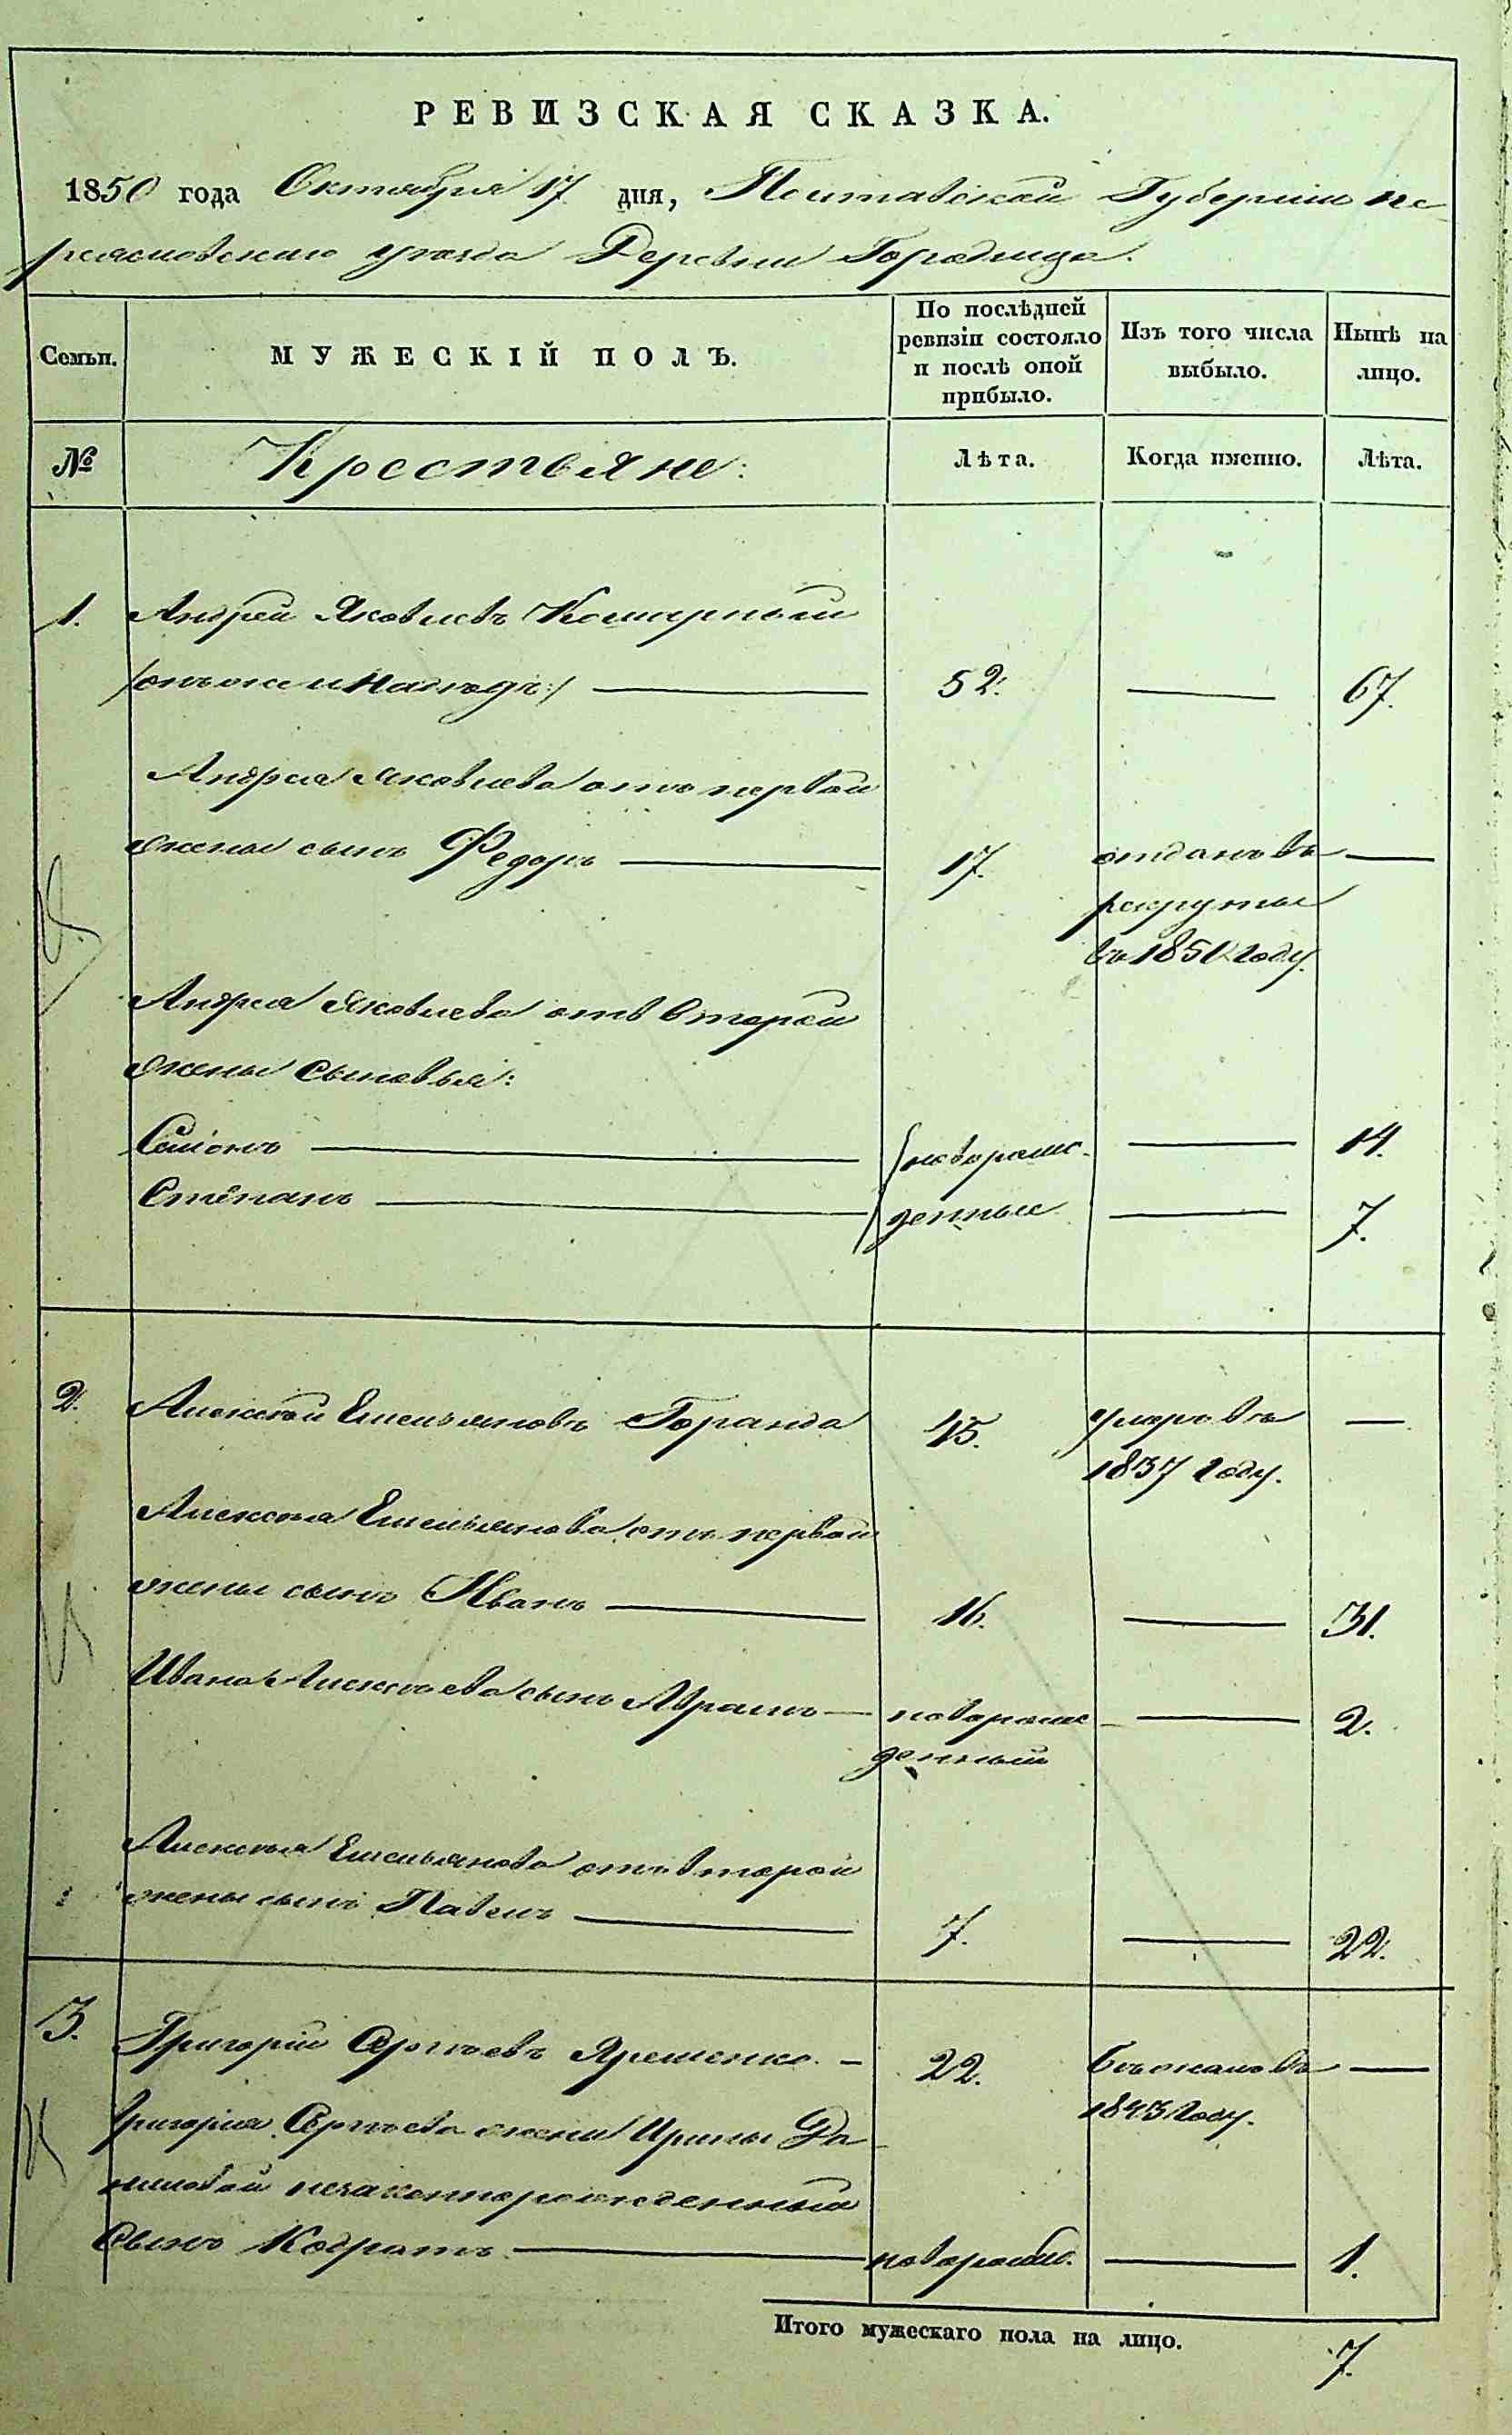 РЕВИЗСКАЯ СКАЗКА.
1850 года Октября 17 дня, Полтавской Губернии пе-
реясловскаго уезда Деревни Городища.
Семьи. МУЖЕСКІЙ ПОЛЪ. По послѣдней ревизіи состояло и послѣ оной прибыло. Изъ того числа выбыло. Нынѣ на лицо.
№ Крестьяне: Лѣта. Когда именно. Лѣта.
1. Андрей Яковлевъ
52. 67.
Андрея Яковлева отъ первой
жены сынъ Федоръ 17. отданъ въ
рекруты
въ 1850 году.
Андрея Яковлева отъ второй
жены сыновья:
Семіонъ новорож- 14.
Степанъ денные 7.
2. Алексей Емельяновъ Горанда 45. умеръ въ
1837 году.
Алексея Емельянова отъ первой
жены сынъ Иванъ 16. 31.
Ивана Алексеева сынъ Аврамъ новорож 2.
денный
Алексея Емельянова отъ второй
жены сынъ Павелъ 7. 22.
3. Григорій Сергѣевъ Яременко. 22. бѣжалъ въ
1843 году.
Григорія Сергѣева жены Ирины Да-
ниловой незаконнорожденный
сынъ Кодратъ новорожд. 1.
Итого мужескаго пола на лицо. 7.